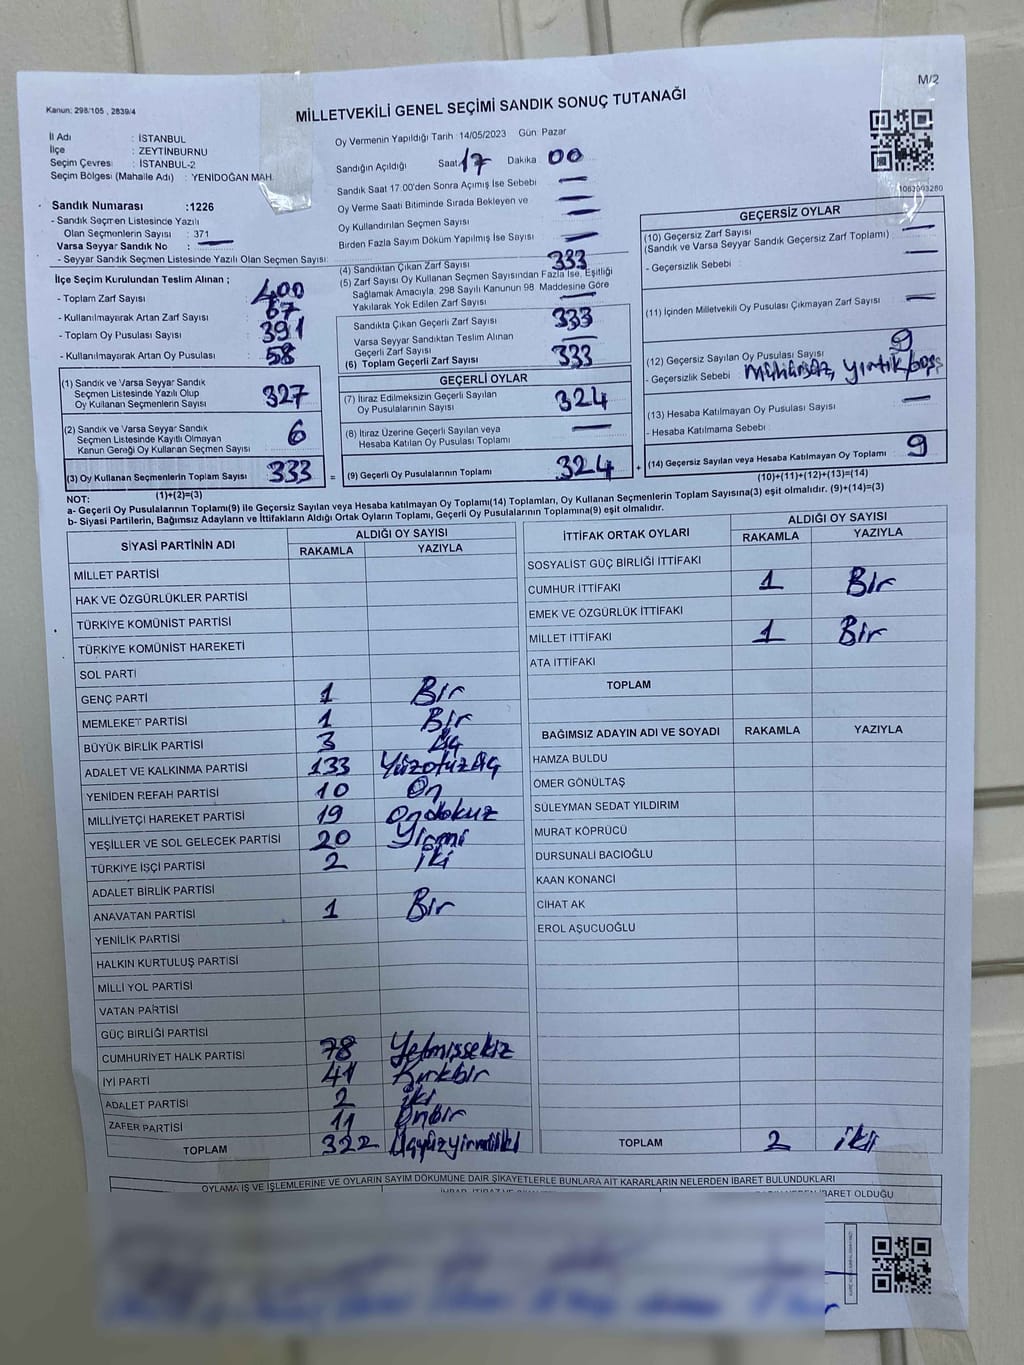 M/2
Kanun: 298/105 , 2839/4
MİLLETVEKİLİ GENEL SEÇİMİ SANDIK SONUÇ TUTANAĞI
İl Adı : İSTANBUL
İlçe : ZEYTİNBURNU
Seçim Çevresi : İSTANBUL-2
Seçim Bölgesi (Mahalle Adı) : YENİDOĞAN MAH.
Sandık Numarası :1226
- Sandık Seçmen Listesinde Yazılı
Olan Seçmenlerin Sayısı : 371
Varsa Seyyar Sandık No : —
- Seyyar Sandık Seçmen Listesinde Yazılı Olan Seçmen Sayısı:
İlçe Seçim Kurulundan Teslim Alınan ;
- Toplam Zarf Sayısı : 400
- Kullanılmayarak Artan Zarf Sayısı : 67
- Toplam Oy Pusulası Sayısı : 391
- Kullanılmayarak Artan Oy Pusulası : 58
(1) Sandık ve Varsa Seyyar Sandık
Seçmen Listesinde Yazılı Olup
Oy Kullanan Seçmenlerin Sayısı 327
(2) Sandık ve Varsa Seyyar Sandık
Seçmen Listesinde Kayıtlı Olmayan
Kanun Gereği Oy Kullanan Seçmen Sayısı 6
(3) Oy Kullanan Seçmenlerin Toplam Sayısı 333
(1)+(2)=(3)
Oy Vermenin Yapıldığı Tarih :14/05/2023 Gün: Pazar
Sandığın Açıldığı Saat 17 Dakika 00
Sandık Saat 17.00'den Sonra Açımış İse Sebebi —
Oy Verme Saati Bitiminde Sırada Bekleyen ve —
Oy Kullandırılan Seçmen Sayısı —
Birden Fazla Sayım Döküm Yapılmış İse Sayısı —
(4) Sandıktan Çıkan Zarf Sayısı 333
(5) Zarf Sayısı Oy Kullanan Seçmen Sayısından Fazla İse, Eşitliği
Sağlamak Amacıyla, 298 Sayılı Kanunun 98. Maddesine Göre
Yakılarak Yok Edilen Zarf Sayısı —
Sandıkta Çıkan Geçerli Zarf Sayısı 333
Varsa Seyyar Sandıktan Teslim Alınan
Geçerli Zarf Sayısı —
(6) Toplam Geçerli Zarf Sayısı 333
GEÇERLİ OYLAR
(7) İtiraz Edilmeksizin Geçerli Sayılan
Oy Pusulalarının Sayısı 324
(8) İtiraz Üzerine Geçerli Sayılan veya
Hesaba Katılan Oy Pusulası Toplamı —
= (9) Geçerli Oy Pusulalarının Toplamı 324
1082993280
GEÇERSİZ OYLAR
(10) Geçersiz Zarf Sayısı —
(Sandık ve Varsa Seyyar Sandık Geçersiz Zarf Toplamı) :
- Geçersizlik Sebebi : —
(11) İçinden Milletvekili Oy Pusulası Çıkmayan Zarf Sayısı —
(12) Geçersiz Sayılan Oy Pusulası Sayısı 9
- Geçersizlik Sebebi : Mühürsüz, yırtık/boş
(13) Hesaba Katılmayan Oy Pusulası Sayısı —
- Hesaba Katılmama Sebebi :
+ (14) Geçersiz Sayılan veya Hesaba Katılmayan Oy Toplamı 9
(10)+(11)+(12)+(13)=(14)
NOT:
a- Geçerli Oy Pusulalarının Toplamı(9) ile Geçersiz Sayılan veya Hesaba katılmayan Oy Toplamı(14) Toplamları, Oy Kullanan Seçmenlerin Toplam Sayısına(3) eşit olmalıdır. (9)+(14)=(3)
b- Siyasi Partilerin, Bağımsız Adayların ve İttifakların Aldığı Ortak Oyların Toplamı, Geçerli Oy Pusulalarının Toplamına(9) eşit olmalıdır.
SİYASİ PARTİNİN ADI ALDIĞI OY SAYISI
RAKAMLA YAZIYLA
MİLLET PARTİSİ
HAK VE ÖZGÜRLÜKLER PARTİSİ
TÜRKİYE KOMÜNİST PARTİSİ
TÜRKİYE KOMÜNİST HAREKETİ
SOL PARTİ
GENÇ PARTİ 1 Bir
MEMLEKET PARTİSİ 1 Bir
BÜYÜK BİRLİK PARTİSİ 3 üç
ADALET VE KALKINMA PARTİSİ 133 Yüzotuzüç
YENİDEN REFAH PARTİSİ 10 On
MİLLİYETÇİ HAREKET PARTİSİ 19 Ondokuz
YEŞİLLER VE SOL GELECEK PARTİSİ 20 Yirmi
TÜRKİYE İŞÇİ PARTİSİ 2 iki
ADALET BİRLİK PARTİSİ
ANAVATAN PARTİSİ 1 Bir
YENİLİK PARTİSİ
HALKIN KURTULUŞ PARTİSİ
MİLLİ YOL PARTİSİ
VATAN PARTİSİ
GÜÇ BİRLİĞİ PARTİSİ
CUMHURİYET HALK PARTİSİ 78 Yetmişsekiz
İYİ PARTİ 41 Kırkbir
ADALET PARTİSİ 2 iki
ZAFER PARTİSİ 11 Onbir
TOPLAM 322 Üçyüzyirmiiki
İTTİFAK ORTAK OYLARI ALDIĞI OY SAYISI
RAKAMLA YAZIYLA
SOSYALİST GÜÇ BİRLİĞİ İTTİFAKI
CUMHUR İTTİFAKI 1 Bir
EMEK VE ÖZGÜRLÜK İTTİFAKI
MİLLET İTTİFAKI 1 Bir
ATA İTTİFAKI
TOPLAM
BAĞIMSIZ ADAYIN ADI VE SOYADI RAKAMLA YAZIYLA
HAMZA BULDU
ÖMER GÖNÜLTAŞ
SÜLEYMAN SEDAT YILDIRIM
MURAT KÖPRÜCÜ
DURSUNALİ BACIOĞLU
KAAN KONANCİ
CİHAT AK
EROL AŞUCUOĞLU
TOPLAM 2 iki
OYLAMA İŞ VE İŞLEMLERİNE VE OYLARIN SAYIM DÖKÜMÜNE DAİR ŞİKAYETLERLE BUNLARA AİT KARARLARIN NELERDEN İBARET BULUNDUKLARI
İBARET OLDUĞU